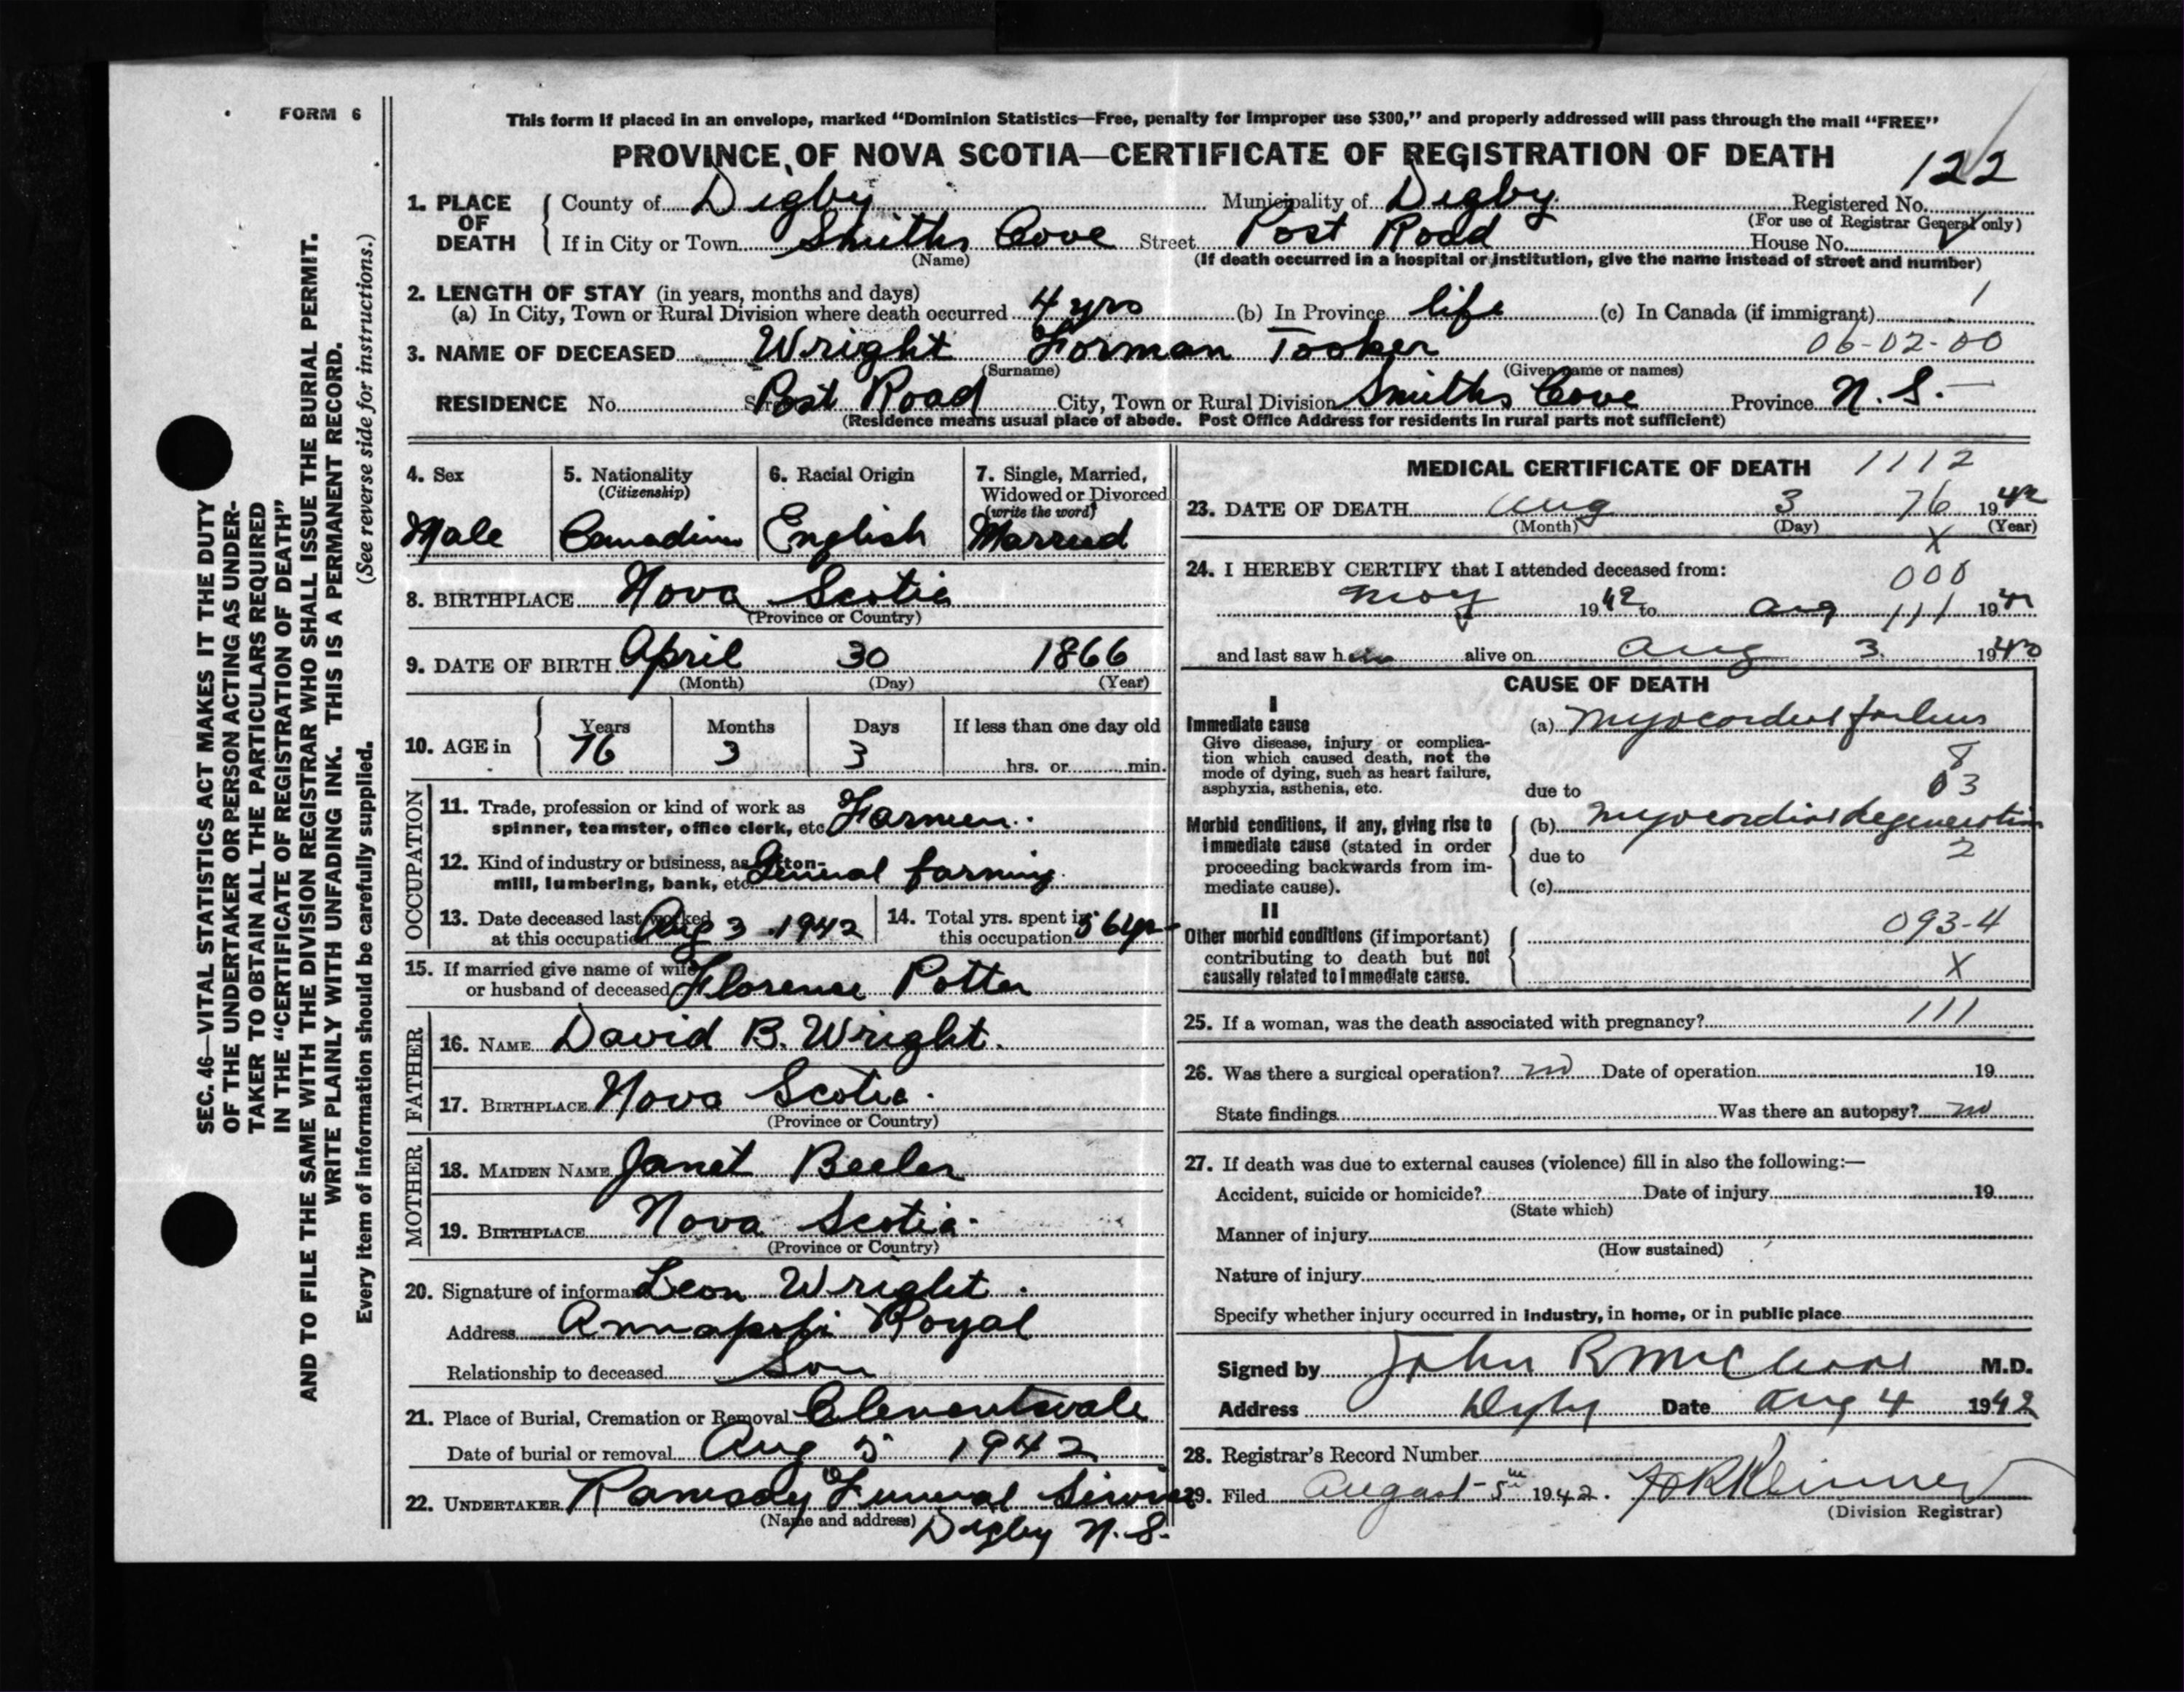 FORM 6
This form if placed in an envelope, marked "Dominion Statistics—Free, penalty for improper use $300," and properly addressed will pass through the mail "FREE"
PROVINCE OF NOVA SCOTIA—CERTIFICATE OF REGISTRATION OF DEATH
122
1. PLACE OF DEATH County of Digby Municipality of Digby Registered No.
(For use of Registrar General only)
If in City or Town Smiths Cove Street Post Road House No.
(Name) (If death occurred in a hospital or institution, give the name instead of street and number)
2. LENGTH OF STAY (in years, months and days)
(a) In City, Town or Rural Division where death occurred 4 yrs (b) In Province life (c) In Canada (if immigrant)
3. NAME OF DECEASED Wright Forman Tooker 06-02-00
(Surname) (Given name or names)
RESIDENCE No. Street Post Road City, Town or Rural Division Smiths Cove Province N.S.
(Residence means usual place of abode. Post Office Address for residents in rural parts not sufficient)
SEC. 46—VITAL STATISTICS ACT MAKES IT THE DUTY
OF THE UNDERTAKER OR PERSON ACTING AS UNDER-
TAKER TO OBTAIN ALL THE PARTICULARS REQUIRED
IN THE "CERTIFICATE OF REGISTRATION OF DEATH"
AND TO FILE THE SAME WITH THE DIVISION REGISTRAR WHO SHALL ISSUE THE BURIAL PERMIT.
WRITE PLAINLY WITH UNFADING INK. THIS IS A PERMANENT RECORD.
Every item of information should be carefully supplied. (See reverse side for instructions.)
4. Sex
Male
5. Nationality
(Citizenship)
Canadian
6. Racial Origin
English
7. Single, Married,
Widowed or Divorced
(write the word)
Married
8. BIRTHPLACE Nova Scotia
(Province or Country)
9. DATE OF BIRTH April 30 1866
(Month) (Day) (Year)
10. AGE in Years Months Days If less than one day old
76 3 3 hrs. or min.
OCCUPATION
11. Trade, profession or kind of work as
spinner, teamster, office clerk, etc. Farmer.
12. Kind of industry or business, as cotton-
mill, lumbering, bank, etc. General farming.
13. Date deceased last worked
at this occupation Aug 3 1942
14. Total yrs. spent in
this occupation 56 yr
15. If married give name of wife
or husband of deceased Florence Potter
FATHER
16. NAME David B. Wright.
17. BIRTHPLACE Nova Scotia.
(Province or Country)
MOTHER
18. MAIDEN NAME Janet Beeler
19. BIRTHPLACE Nova Scotia.
(Province or Country)
20. Signature of informant Leon Wright.
Address Annapolis Royal
Relationship to deceased Son
21. Place of Burial, Cremation or Removal Clementsvale
Date of burial or removal Aug 5 1942
22. UNDERTAKER Ramsay Funeral Service
(Name and address) Digby N.S.
MEDICAL CERTIFICATE OF DEATH 1112
23. DATE OF DEATH Aug 3 76 1942
(Month) (Day) (Year)
X
24. I HEREBY CERTIFY that I attended deceased from:
000
May 1942 to Aug 111 19
and last saw him alive on Aug 3 19
CAUSE OF DEATH
I
Immediate cause
Give disease, injury or complica-
tion which caused death, not the
mode of dying, such as heart failure,
asphyxia, asthenia, etc.
(a) Myocardial failure
8
03
due to
Morbid conditions, if any, giving rise to
immediate cause (stated in order
proceeding backwards from im-
mediate cause).
(b) Myocardial degeneration
due to 2
(c)
II
Other morbid conditions (if important)
contributing to death but not
causally related to immediate cause.
093-4
X
25. If a woman, was the death associated with pregnancy? 111
26. Was there a surgical operation? no Date of operation 19
State findings Was there an autopsy? no
27. If death was due to external causes (violence) fill in also the following:—
Accident, suicide or homicide? Date of injury 19
(State which)
Manner of injury
(How sustained)
Nature of injury
Specify whether injury occurred in industry, in home, or in public place
Signed by John R McCleave M.D.
Address Digby Date Aug 4 1942
28. Registrar's Record Number
29. Filed August 5th 1942.
(Division Registrar)